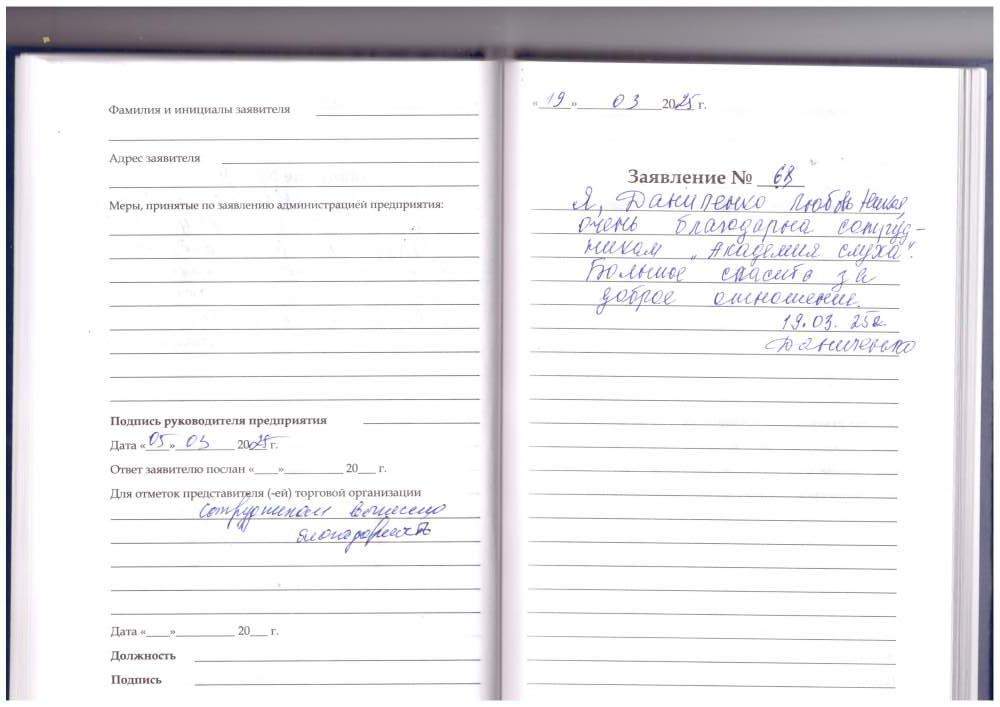 Фамилия и инициалы заявителя
Адрес заявителя
Меры, принятые по заявлению администрацией предприятия:
Подпись руководителя предприятия
Дата «05» 03 2025 г.
Ответ заявителю послан «____»__________ 20___ г.
Для отметок представителя (-ей) торговой организации
Сотрудникам вынесена
благодарность
Дата «____»__________ 20___ г.
Должность
Подпись
«19» 03 2025 г.
Заявление № 68
Я, Даниленко Любовь
очень благодарна сотруд-
никам „Академия слуха".
Большое спасибо за
доброе отношение.
19.03. 25г.
Даниленко